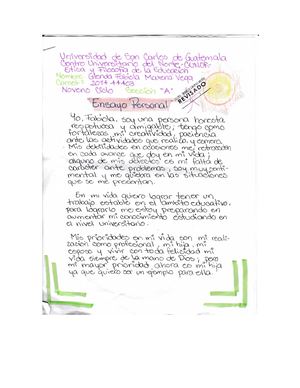 Universidad de San Carlos de Guatemala
Centro Universitario del Norte-CUNOR-
Ética y Filosofía de la Educación
Nombre: Glenda Fabiola Moreno Vega
Carnet:
Noveno Ciclo Sección "A"
REVISADO
"Ensayo Personal"
Yo, Fabiola, soy una persona honesta
respetuosa y amigable; tengo como
fortalezas mi creatividad, paciencia
ante las actividades que realizo y esmero.
Mis debilidades en ocasiones me retroceden
en cada avance que doy en mi vida;
alguno de mis defectos es mi falta de
carácter ante problemas, soy muy senti-
mental y me quiebro en las situaciones
que se me presentan.
En mi vida quiero lograr tener un
trabajo estable en el ámbito educativo,
para lograrlo me estoy preparando en
aumentar mi conocimiento estudiando en
el nivel universitario.
Mis prioridades en mi vida son mi reali-
zación como profesional, mi hija, mi
esposo y vivir con toda felicidad mi
vida siempre de la mano de Dios; pero
mi mayor prioridad ahora es mi hija
ya que quiero ser un ejemplo para ella.